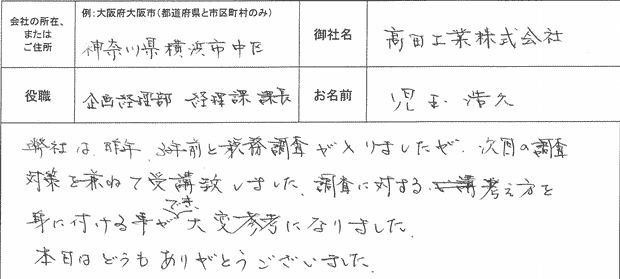 会社の所在、またはご住所
例:大阪府大阪市(都道府県と市区町村のみ)
神奈川県横浜市中区
御社名
高田工業株式会社
役職
企画経理部 経理課 課長
お名前
児玉 浩久
弊社は、昨年、3年前と税務調査が入りましたが、次回の調査
対策を兼ねて受講致しました。調査に対する考え方を
身に付ける事ができ、大変参考になりました。
本日はどうもありがとうございました。